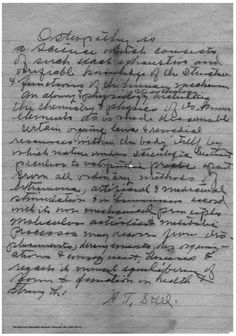 Osteopathy is
a Science which consists
of such exact exhaustive and
verifiable knowledge of the Structure
& functions of the human mechanism
anatomy & physiology including
the chemistry & physics of its known
elements as is made discernable
certain organic laws & remedial
resources within the body itself by
which nature under scientific treatment
peculiar to osteopathic practice
from all ordinary methods of
extraneous, artificial & medicinal
stimulation in harmonious accord
with its own mechanical principles
molecular activities & metabolic
processes may recover from dis
placements, derangements, disorganiz-
ations & consequent diseases &
regain its normal equilibrium of
form & function in health &
strength.
A. T. Still.